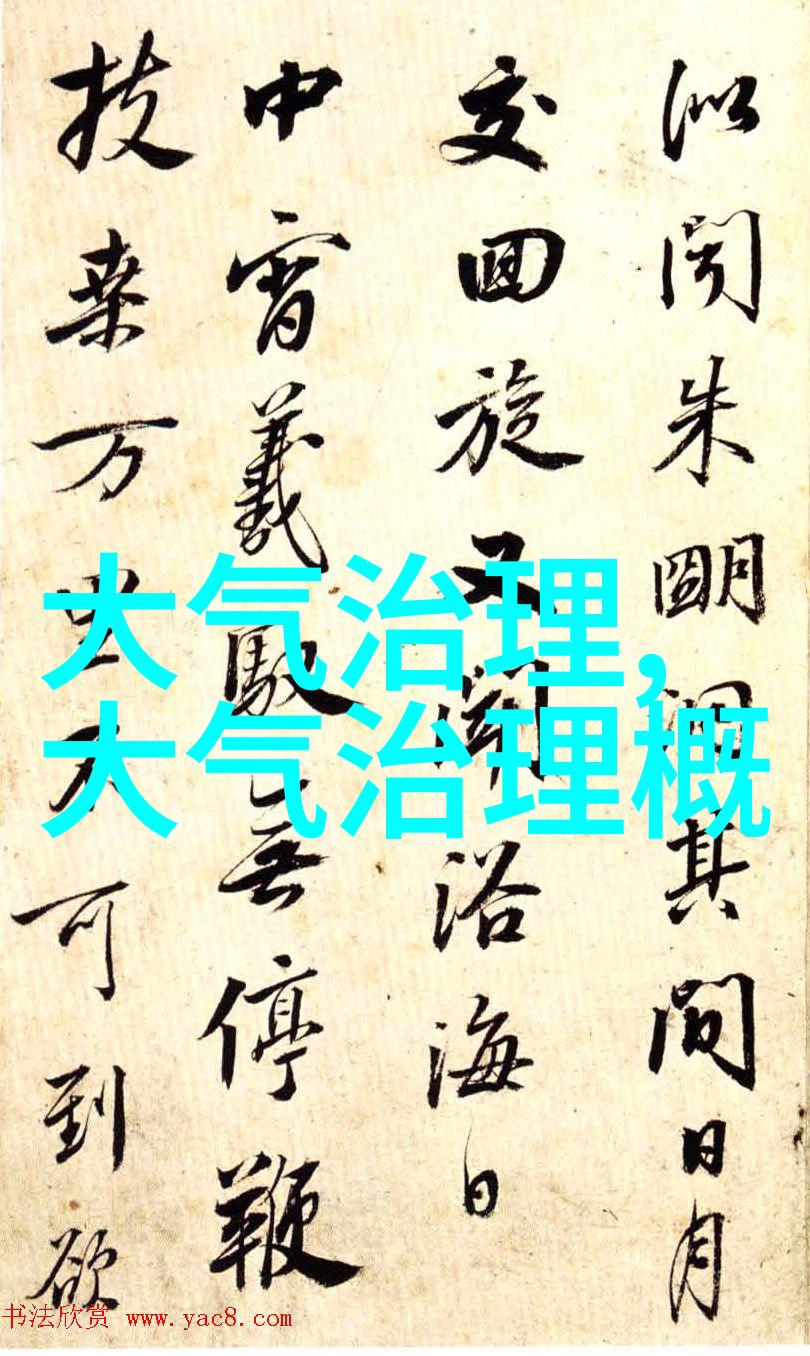 沉閟朱明洞其間日月
交回旋又聞浴海日
中宵羲馭無停鞭
技来万里不可到欲
大气治理，
大气治理概
书法欣赏 www.yac8.com